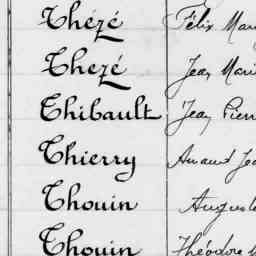 Thézé Félix Mar
Thezé Jean Mari
Thibault Jean Pierr
Thierry Amand Je
Thouin Auguste
Thouin Théodore